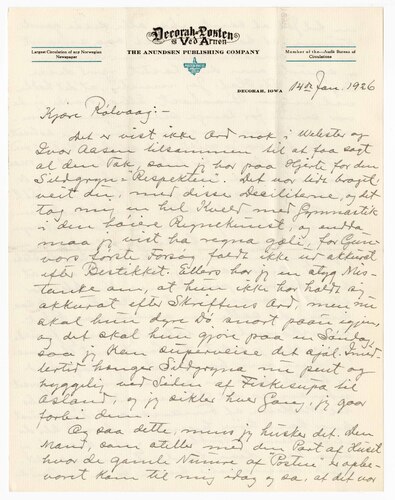 Decorah-Posten
& Ved Arnen
THE ANUNDSEN PUBLISHING COMPANY
Largest Circulation of any Norwegian
Newspaper
Member of the Audit Bureau of
Circulations
DECORAH, IOWA 14de Jan. 1926
Kjære Rølvaag:-
Det er vist ikke Ord nok i Webster og
Ivar Aasen tilsammen til at faa sagt
al den Tak, som jeg har paa Hjerte for den
Sildgryn "Respekten". Det var lidt
veit du, med disse Deciliterne, og det
tog mig en hel Kveld med Gymnastik
i den høiere Regnekunst, og endda
maa jeg vist ha regna gæli, for Gun-
vors første Forsøg faldt ikke ud akkurat
efter Destikket. Ellers har jeg en styg Mis-
tanke om, at hun ikke har holdt sig
akkurat efter Skriftens Ord, men nu
skal hun snart paa'n igjen,
og det skal hun gjøre paa en Søndag,
saa jeg kan superveise det sjøl. Imid-
lertid hænger Sildgryna nu pent og
hyggelig ved Siden af Fiskesupa til
Asland, og jeg sikler hver Gang jeg gaar
forbi dem.
Og saa dette, mens jeg husker det. Den
Mand, som steller med den Part af Huset
hvor de gamle Numre af "Posten" er opbe-
varet kom til mig idag og sa, at det var